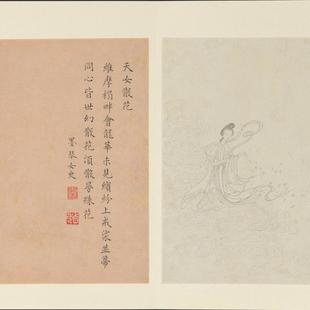 天女散花
維摩榻畔會龍華未見繽紛上戒袈並蒂
同心皆世幻散花須散曼殊花
墨琴女史